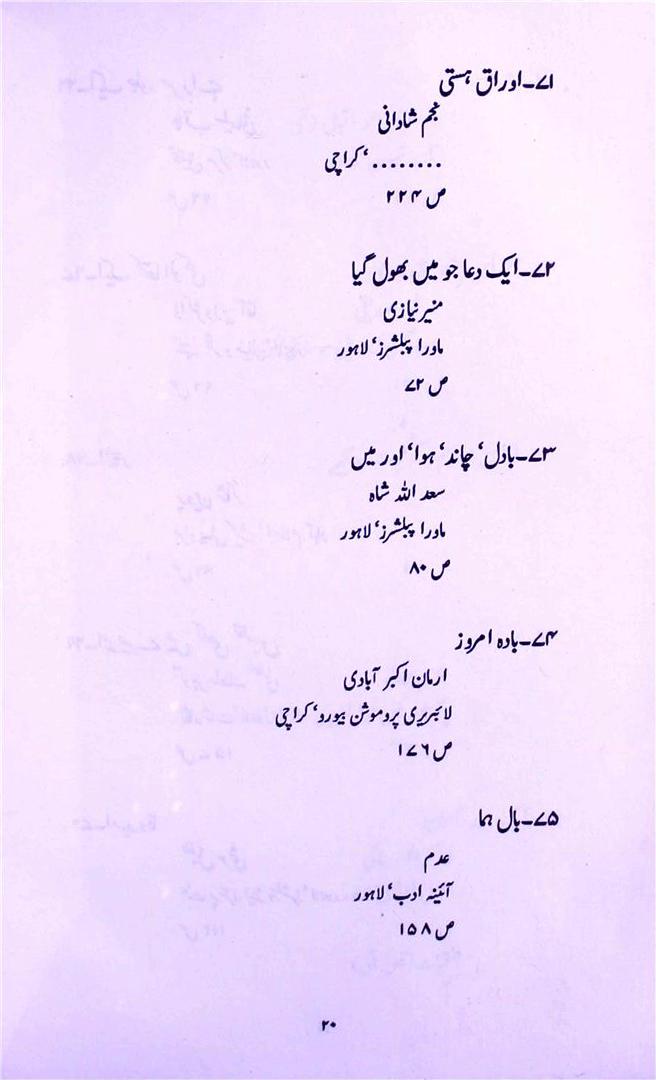 ۷۱۔اوراق ہستی
نجم شادانی
........‘ کراچی
ص ۲۲۴
۷۲۔ایک دعا جو میں بھول گیا
منیر نیازی
ماورا پبلشرز‘ لاہور
ص ۷۲
۷۳۔بادل‘ چاند‘ ہوا‘ اور میں
سعد اللہ شاہ
ماورا پبلشرز‘ لاہور
ص ۸۰
۷۴۔بادہ امروز
ارمان اکبر آبادی
لائبریری پروموشن بیورو‘ کراچی
ص ۱۷۶
۷۵۔بال ہما
عدم
آئینہ ادب‘ لاہور
ص ۱۵۸
۲۰